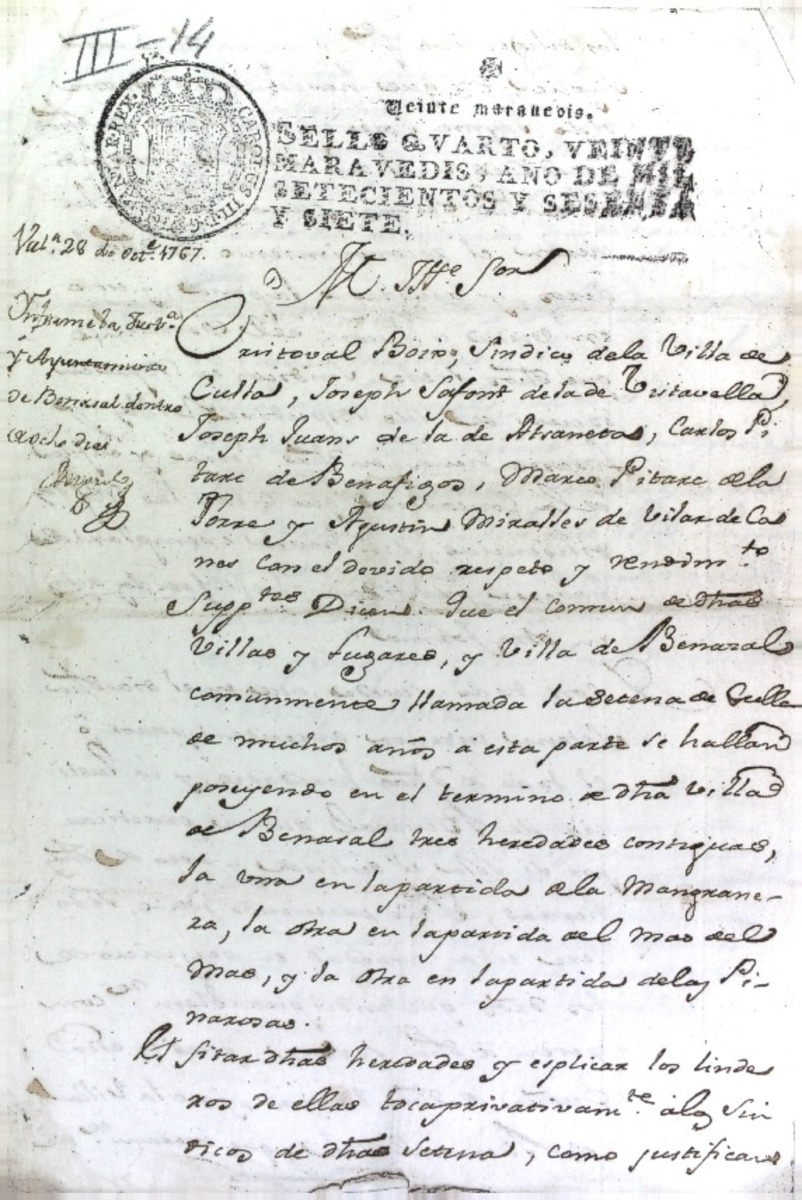 III-14
CAROLUS III D G HISPANIAR REX
Veinte maravedis.
SELLO QVARTO, VEINTE
MARAVEDIS, AÑO DE MIL
SETECIENTOS Y SESENTA
Y SIETE.
Val.ª 28 de oct.e 1767.
M. Ille Sor
Informe la Just.ª
y Ayuntamiento
de Benasal dentro
ocho dias
Cristoval Boix, Sindico de la Villa de
Culla, Joseph Safont de la de Vistavella,
Joseph Juans de la de Atzaneta, Carlos Pi
tarc de Benafigos, Marco Pitarc de la
Torre y Agustin Miralles de Vilar de Ca
nes con el devido respeto y rendim.to
Supp.tes Dicen. Que el comun de dhas
Villas y Lugares, y Villa de Benasal
comunmente llamada la Setena de Culla
de muchos años a esta parte se hallan
poseyendo en el termino de dha Villa
de Benasal tres heredades contiguas,
la una en la partida de la Mangrane-
ra, la otra en la partida del Mas del
Mas, y la otra en la partida de las Pi-
narosas.
El sitar dhas heredades y esplicar los linde
ros de ellas toca privativam.te á los Sin
dicos de dha Setena, como justificaran